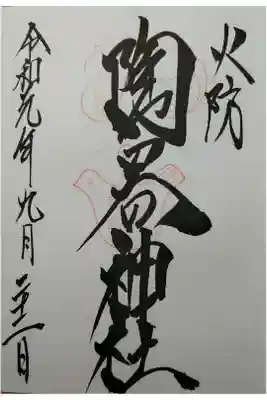 火防
陶器神社
令和元年九月二十一日